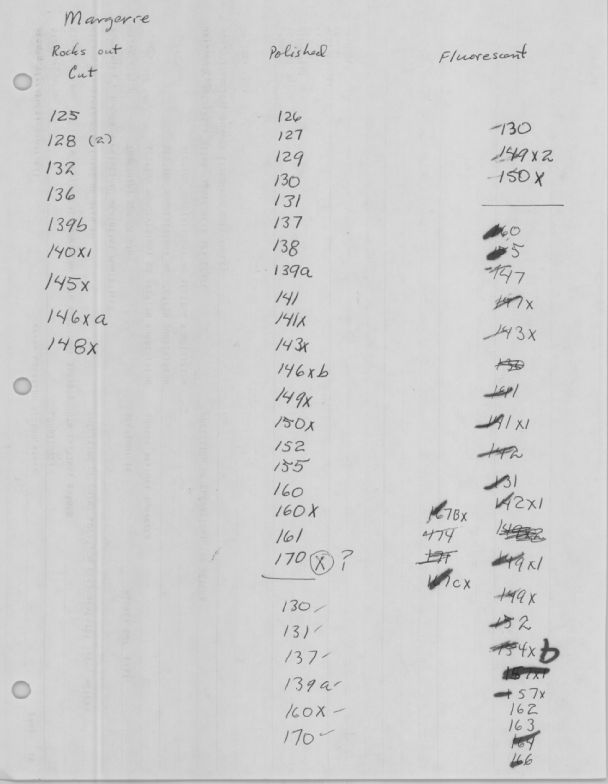 Margerre
Rocks out
Cut
125
128 (2)
132
136
139b
140x1
145x
146xa
148x
Polished
126
127
129
130
131
137
138
139a
141
141x
143x
146xb
149x
150x
152
155
160
160X
161
170 (X) ?
130 ✓
131 ✓
137 ✓
139a ✓
160X ✓
170 ✓
Fluorescent
130
149x2
150x
147
143x
130
141x1
142
131
142x1
149x1
149x
152
154xb
157x1
157x
162
163
164
166
167Bx
474